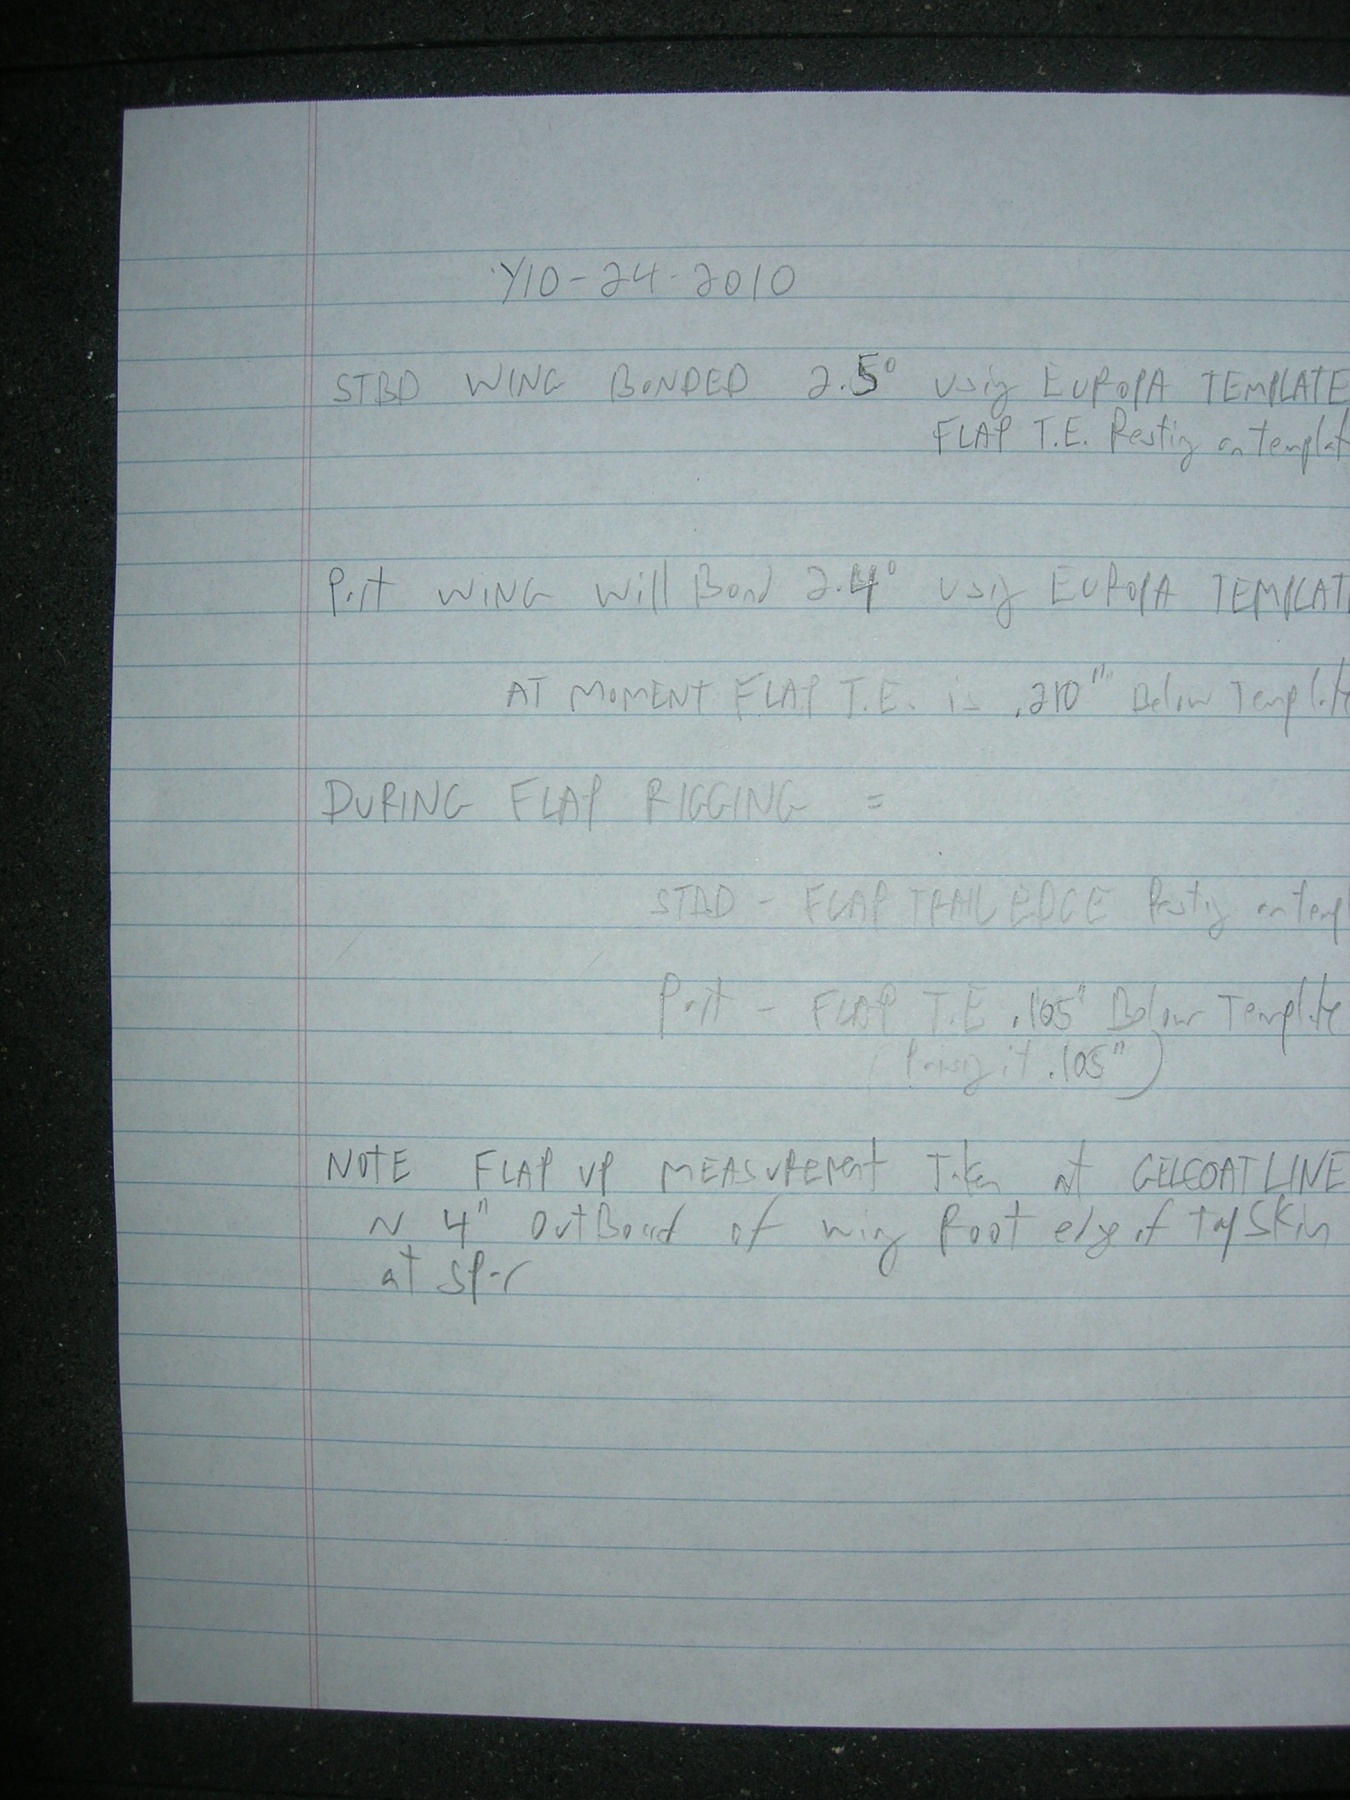 Y10-24-2010
STBD WING BONDED 2.5° Using EUROPA TEMPLATE
FLAP T.E. Resting on templat
Port WING Will Bond 2.4° Using EUROPA TEMPLAT
AT MOMENT FLAP T.E. is .210" Below Template
DURING FLAP RIGGING =
STBD - FLAP TRAIL EDGE Resting on templ
Port - FLAP T.E .105" Below Template
( it .105")
NOTE FLAP UP MEASUREMENT Taken at GELCOAT LINE
~ 4" OutBoard of wing Root edge of top SKin
at spar